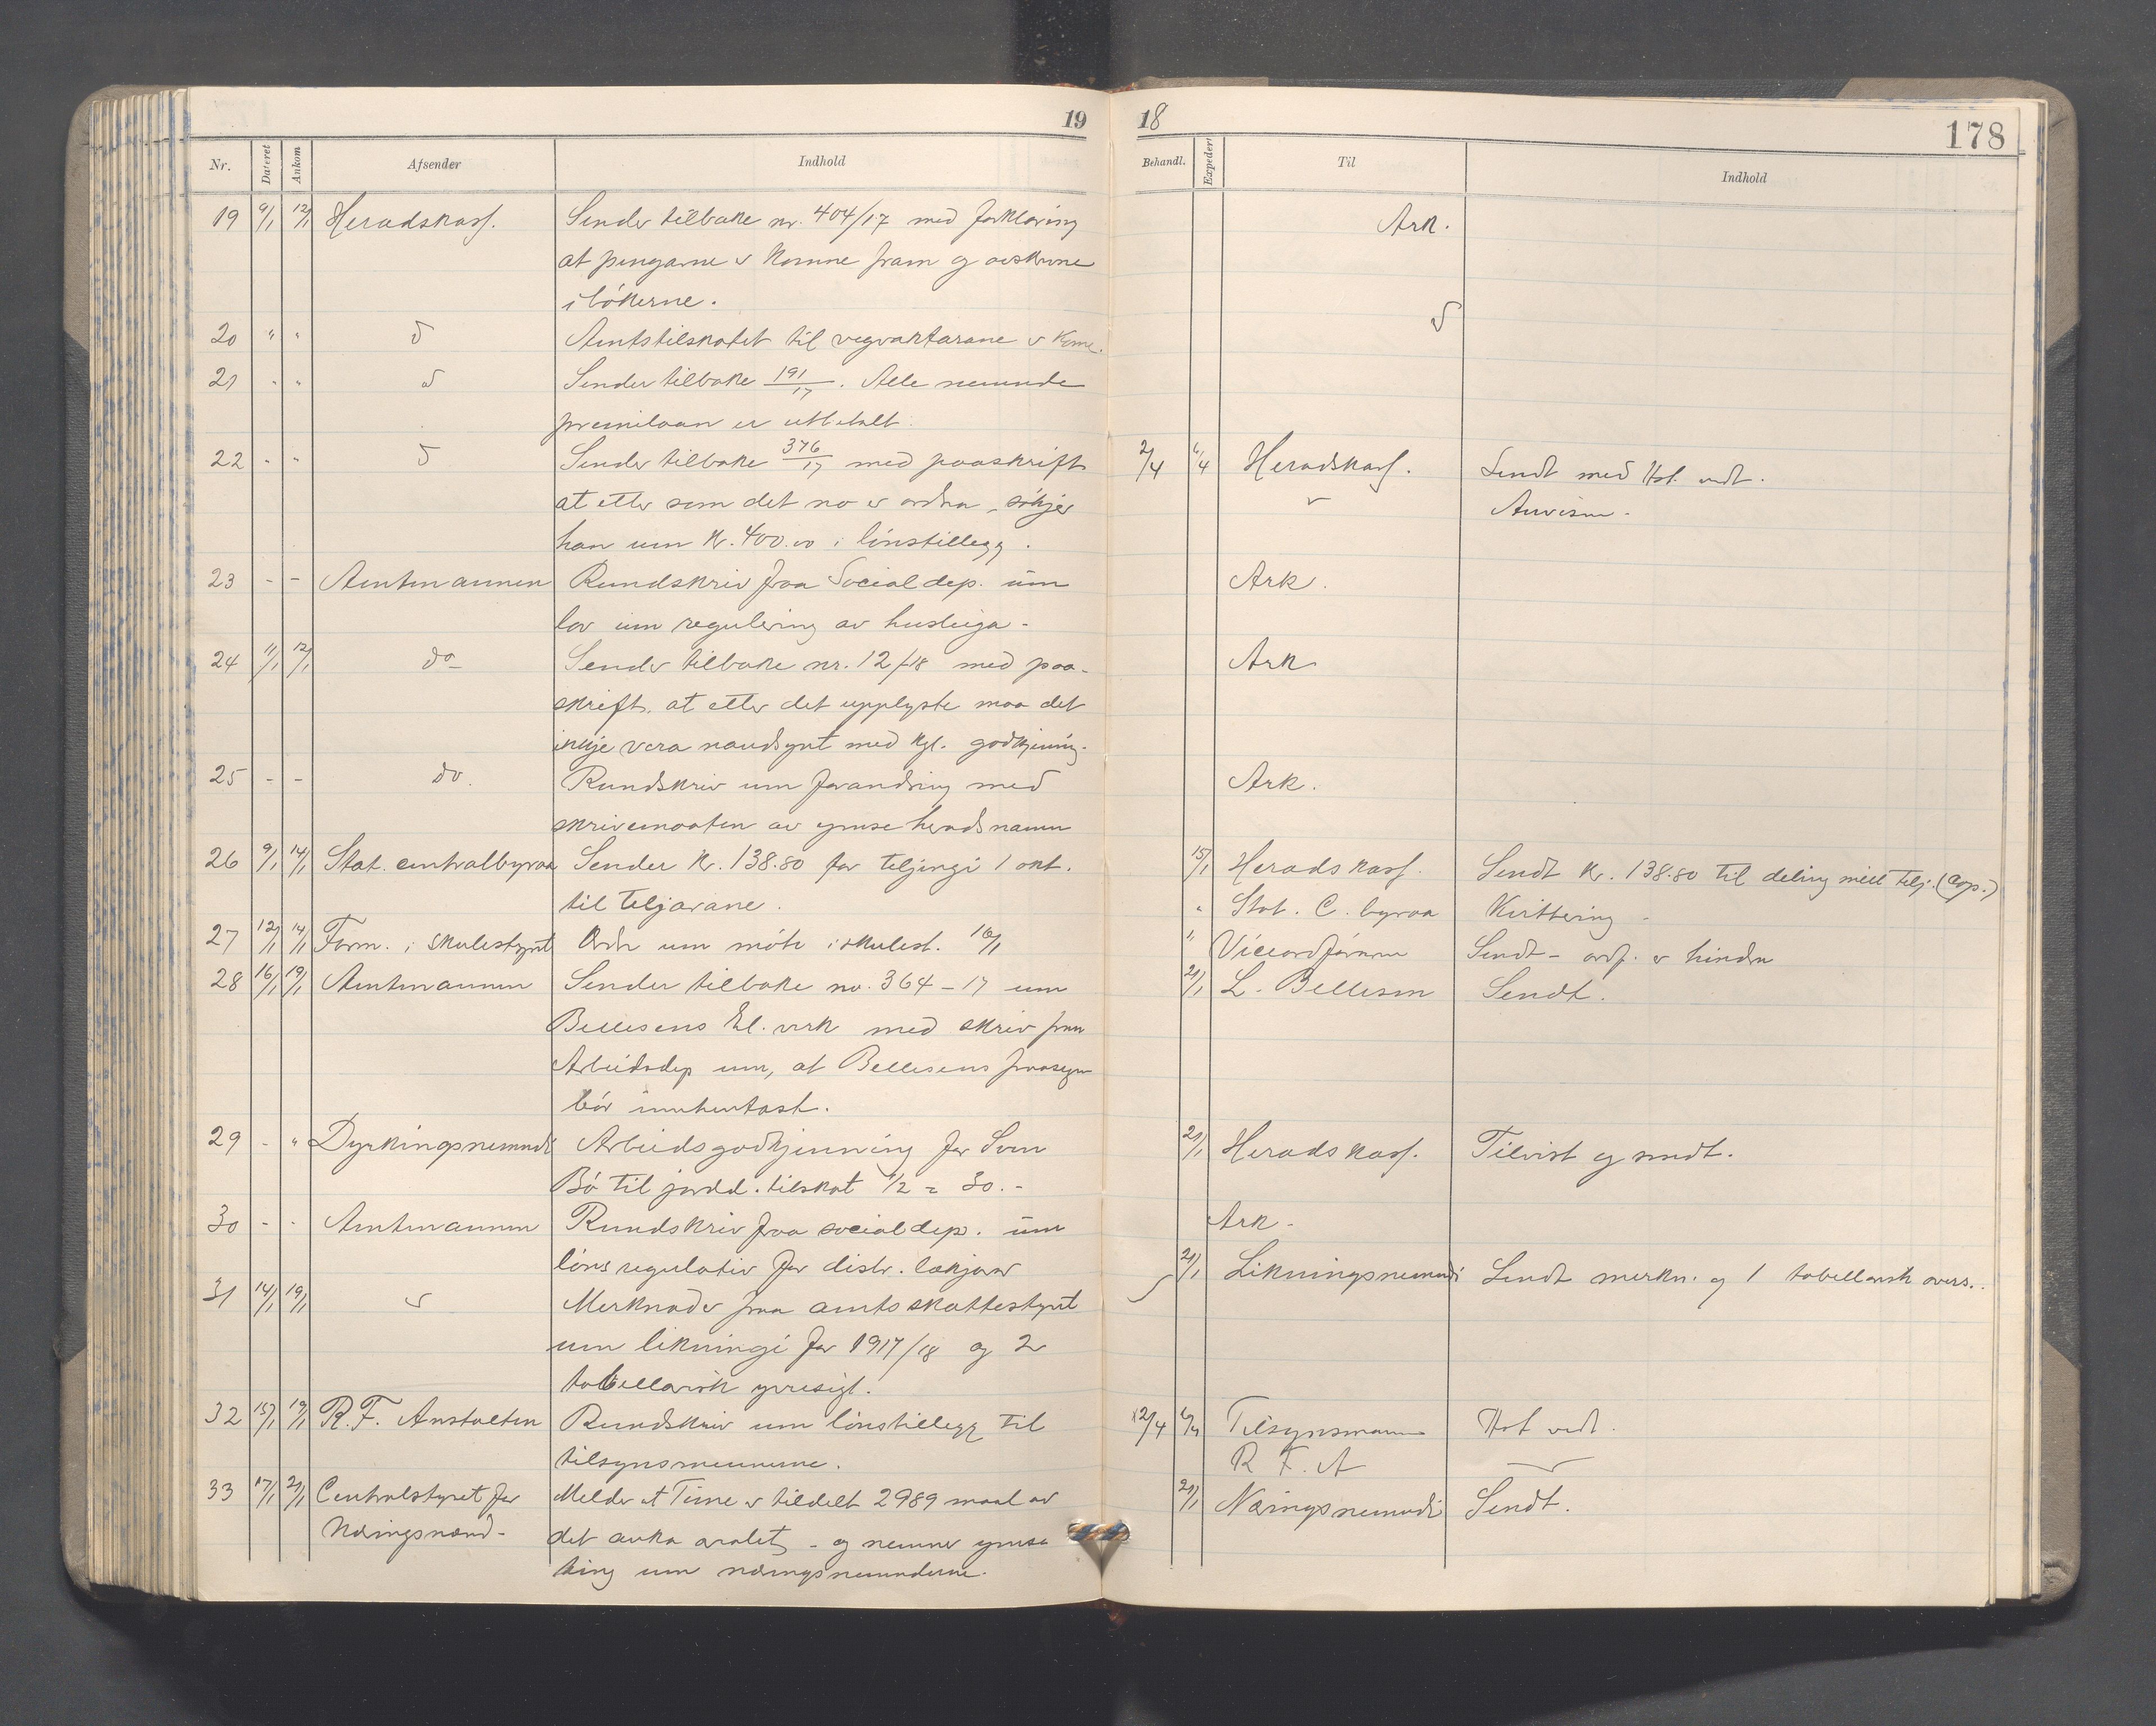 19
Nr. Dateret Ankom Afsender Indhold
19 9/1 12/1 Heradskass. Sender tilbake nr. 404/17 med forklaring
at pengarne er komne fram og avskrivne
i bökerne.
20 " " do Amtstilskotet til vegvaktarane er kome.
21 " " do Sender tilbake 191/17. Alle nemnde
premilaan er utbetalt.
22 - " do Sender tilbake 376/17 med paaskrift
at etter som det no er ordna, sökjer
han um kr. 400.00 i lönstillegg.
23 - - Amtmannen Rundskriv fraa Socialdep. um
lov um regulering av husleiga -
24 11/1 12/1 do Sender tilbake nr. 12/18 med paa-
skrift, at etter det upplyste maa det
inkje vera naudsynt med kgl. godkjenning.
25 - - do. Rundskriv um forandring med
skrivemaaten av ymse heradsnamn
26 9/1 14/1 Stat. centralbyraa Sender kr. 138.80 for teljingi 1 okt.
til teljarane.
27 12/1 14/1 Form. i skulestyret Ordr um möte i skulest. 16/1
28 16/1 19/1 Amtmannen Sender tilbake nr. 364-17 um
Bellesens El. verk med skriv fraa
Arbeidsdep um, at Bellesens fraasegn
bör innhentast.
29 - " Dyrkingsnemndi Arbeidsgodkjenning for Sven
Bö til jordd. tilskot 1/2 = 30.-
30 - - Amtmannen Rundskriv fraa socialdep. um
lönsregulativ for distr. lækjarar
31 14/1 19/1 do Merknader fraa amtsskattestyret
um likningi for 1917/18 og 2
tabellarisk yversigt.
32 15/1 19/1 R.F. Anstalten Rundskriv um lönstillegg til
tilsynsmennerne.
33 17/1 21/1 Centralstyret for Melder at Time er tildelt 2989 maal av
Næringsnemd- det auka aralet, - og nemner ymse
ting um næringsnemnderne.
18
178
Behandl. Expedert Til Indhold
Ark.
do
2/4 6/4 Heradskass. Sendt med Hst. vedt.
" Anvisn -
Ark.
Ark
Ark.
15/1 Heradskass. Sendt kr. 138.80 til deling mill telj. (Cop.)
" Stat. C. byraa Kvittering -
" Viceordförarn Sendt - ordf. er hindra
21/1 L. Bellesen Sendt.
21/1 Heradskass. Tilvist og sendt.
Ark -
21/1 Likningsnemndi Sendt merkn. og 1 tabellarisk overs..
2/4 6/4 Tilsynsmann Hst vedt.
R F. A
21/1 Næringsnemndi Sendt.